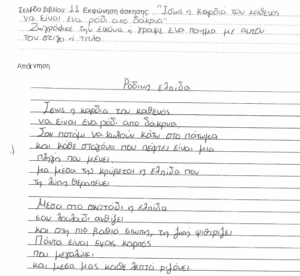 Σελίδα βιβλίου: 11 Εκφώνηση άσκησης: "Ίσως η καρδιά του καθενός
να είναι ένα ρόδι από δάκρυα"
Ζωγράφισε την εικόνα ή γράψε ένα ποίημα με αυτόν
τον στίχο ή τίτλο.
Απάντηση
Ρόδινη ελπίδα
Ίσως η καρδιά του καθενός
να είναι ένα ρόδι από δάκρυα.
Σαν ποτάμι να κυλούν κάτω στο πάτωμα
και κάθε σταγόνα που πέφτει είναι μια
πληγή που μένει.
μα μέσα της κρύβεται η ελπίδα που
τη λύπη θεραπεύει.
Μέσα στο σκοτάδι η ελπίδα
σαν λουλούδι ανθίζει
και στη πιο βαθιά σιωπή, τη ζωή ψιθυρίζει
Πάντα είναι ένας καρπός
που μεγαλώνει
και μέσα μας κάθε λεπτό ριζώνει.